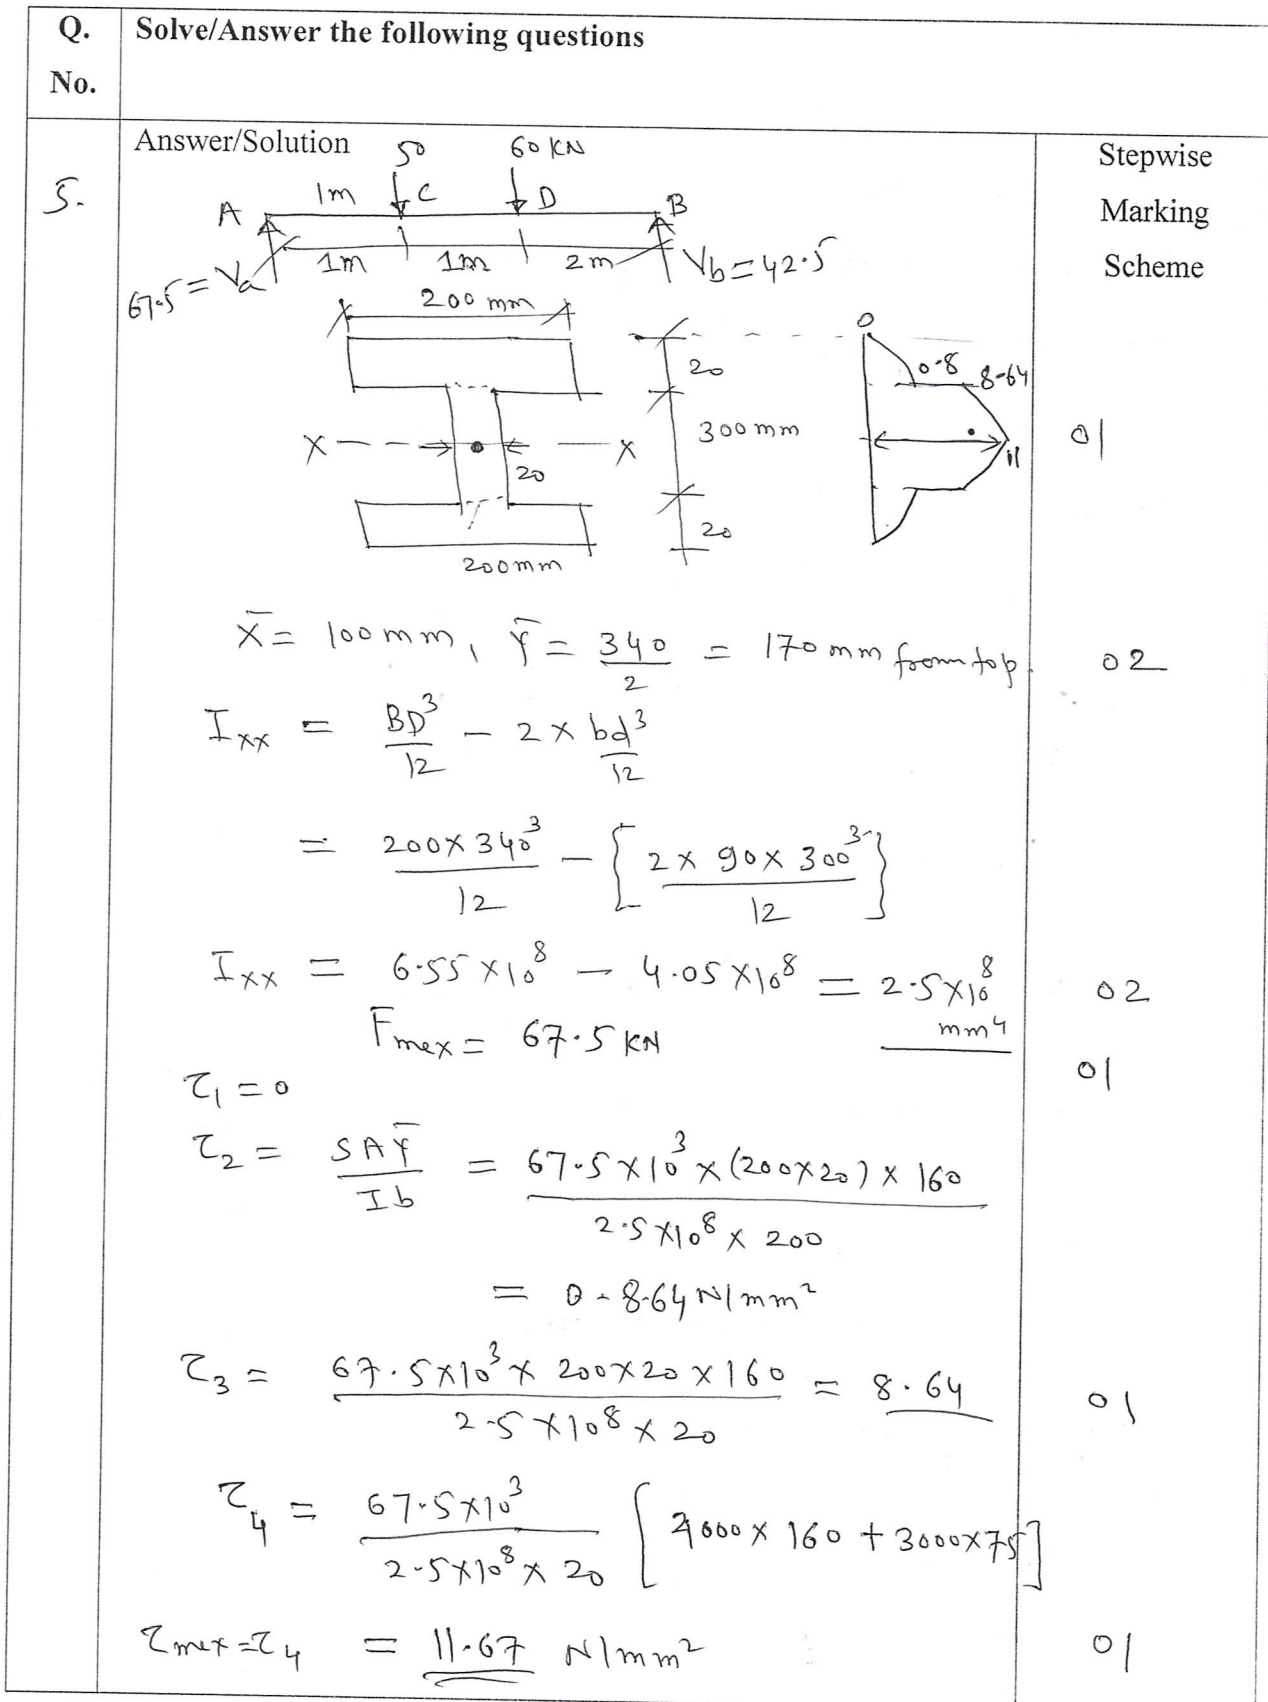 Q. No. Solve/Answer the following questions
5. Answer/Solution
Stepwise Marking Scheme
50 60 KN
A 1m C D B
1m 1m 2m
67.5 = Va Vb = 42.5
200 mm
20
300 mm
20
X X
20
200mm
0
0.8
8.64
11
01
X̄ = 100mm, Ȳ = 340/2 = 170 mm from top. 02
Ixx = BD³/12 - 2 × bd³/12
= 200×340³/12 - {2 × 90 × 300³/12}
Ixx = 6.55 ×10⁸ - 4.05 ×10⁸ = 2.5×10⁸ mm⁴ 02
Fmex = 67.5 KN 01
τ₁ = 0
τ₂ = SAȲ/Ib = 67.5×10³ × (200×20) × 160 / 2.5×10⁸ × 200
= 0.8.64 N/mm²
τ₃ = 67.5×10³ × 200×20 × 160 / 2.5×10⁸ × 20 = 8.64 01
τ₄ = 67.5×10³ / 2.5×10⁸ × 20 [4000 × 160 + 3000×75]
τmex = τ₄ = 11.67 N/mm² 01